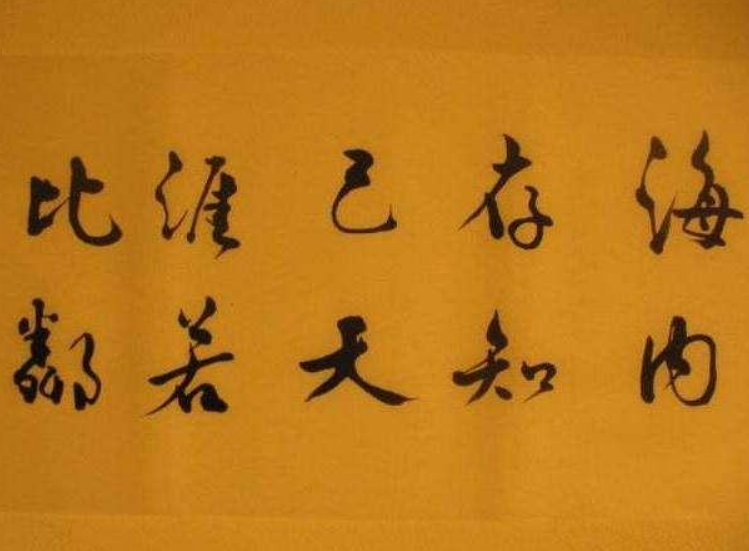 海内
存知
己天
涯若
比鄰